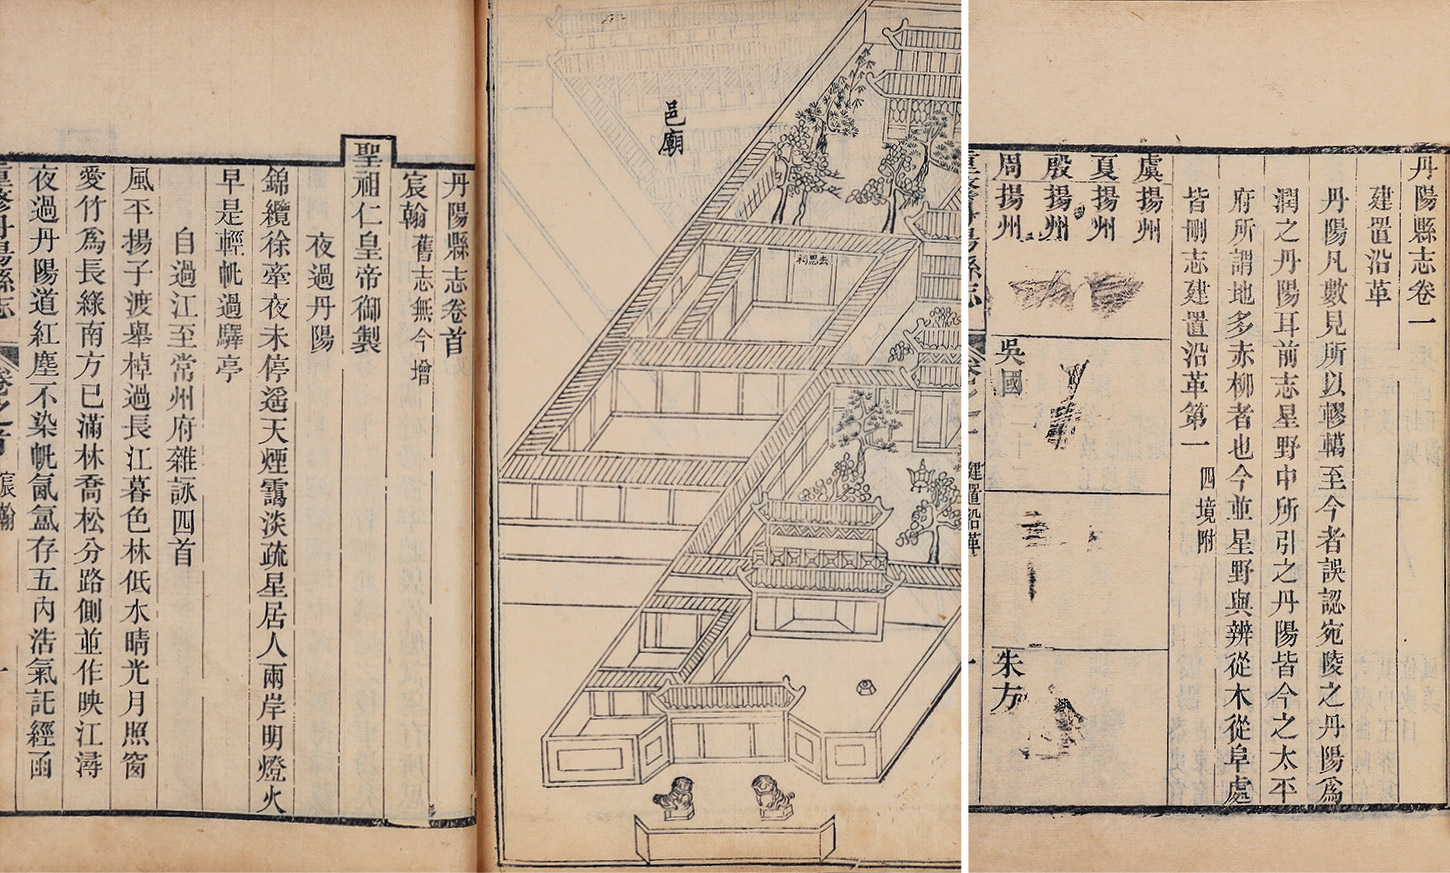 丹陽縣志卷首
宸翰 舊志無今增
聖祖仁皇帝御製
夜過丹陽
錦纜徐牽夜未停遥天煙靄淡疏星居人兩岸明燈火
早是輕帆過驛亭
自過江至常州府雜詠四首
風平揚子渡舉棹過長江暮色林低水晴光月照窗
愛竹爲長綠南方已滿林喬松分路側並作映江潯
夜過丹陽道紅塵不染帆氤氳存五內浩氣託經函
重修丹陽縣志 卷之首 宸翰 一
邑廟
去思祠
丹陽縣志卷一
建置沿革
丹陽凡數見所以轇轕至今者誤認宛陵之丹陽爲
潤之丹陽耳前志星野中所引之丹陽皆今之太平
府所謂地多赤柳者也今並星野與辨從木從阜處
皆刪志建置沿革第一 四境附
虞揚州
夏揚州
殷揚州
周揚州 吳國 朱方
重修丹陽縣志 卷之一 建置沿革 一